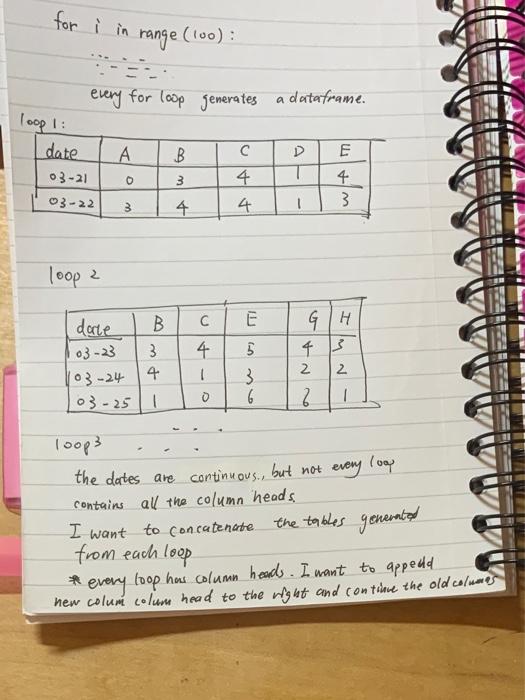 for i in range (100) :
every for loop generates a dataframe.
loop 1 :
date A B C D E
03-21 0 3 4 1 4
03-22 3 4 4 1 3
loop 2
date B C E G H
03-23 3 4 5 4 3
03-24 4 1 3 2 2
03-25 1 0 6 1
loop3
the dates are continuous., but not every loop
contains all the column heads
I want to concatenate the tables generated
from each loop
* every loop has column heads. I want to append
new colum colum head to the right and continue the old columes